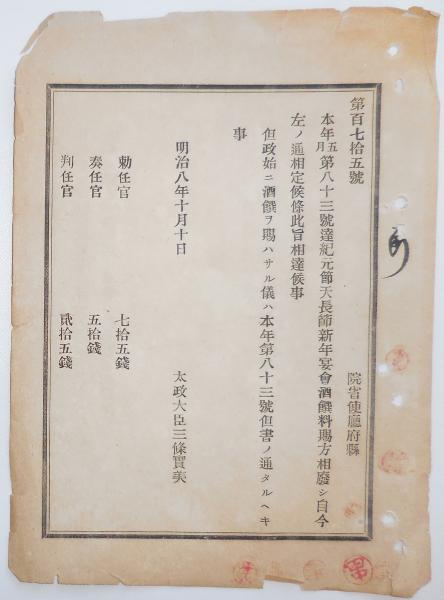 第百七拾五號
院省使廳府縣
本年五月第八十三號達紀元節天長節新年宴會酒饌料賜方相廢シ自今
左ノ通相定候條此旨相達候事
但政始ニ酒饌ヲ賜ハサル儀ハ本年第八十三號但書ノ通タルヘキ
事
明治八年十月十日
太政大臣三條實美
勅任官 七拾五錢
奏任官 五拾錢
判任官 貳拾五錢